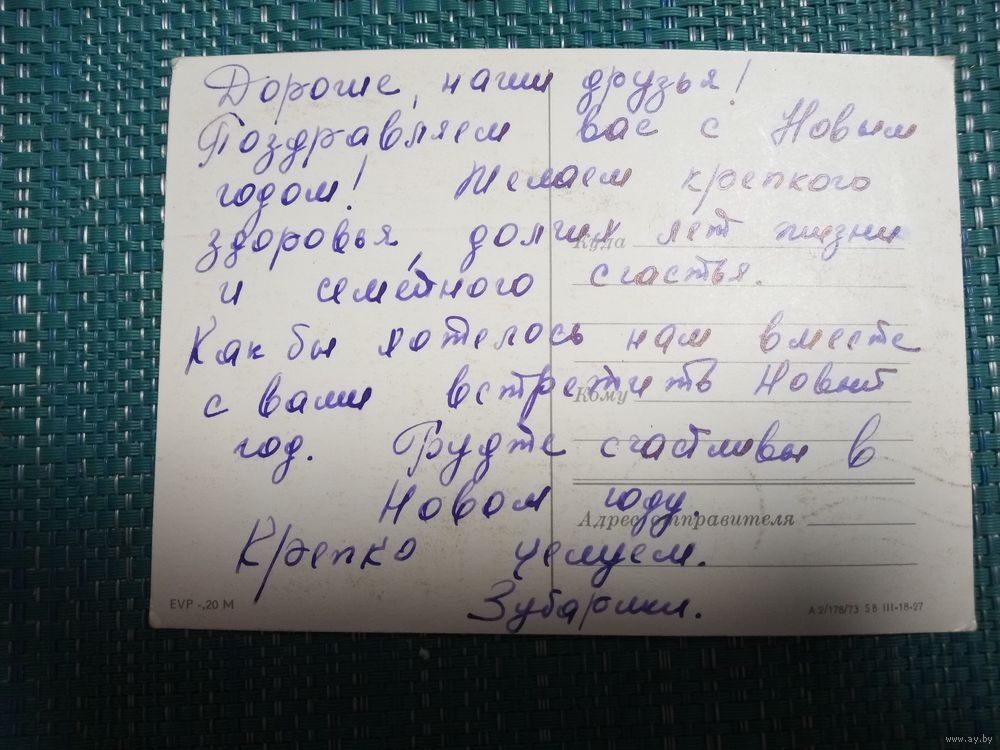 Дорогие, наши друзья!
Поздравляем вас с Новым
годом! Желаем крепкого
здоровья, долгих лет жизни
Куда
и семейного счастья.
Как бы хотелось нам вместе
с вами встретить Новый
Кому
год. Будте счастливы в
Новом году.
Адрес отправителя
Крепко целуем.
EVP -,20 M
A 2/178/73 SB III-18-27
www.ay.by